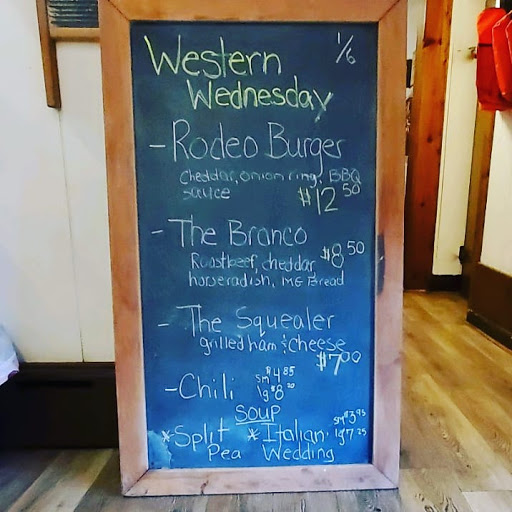 Western 1/6
Wednesday
- Rodeo Burger
Cheddar, onion ring, BBQ
sauce $12.50
- The Bronco $8.50
Roastbeef, cheddar
horseradish, MG Bread
- The Squealer
grilled ham & cheese
$7.00
- Chili sm $4.85
lg $8.20
Soup
*Split *Italian sm $3.95
Pea Wedding lg 7.25